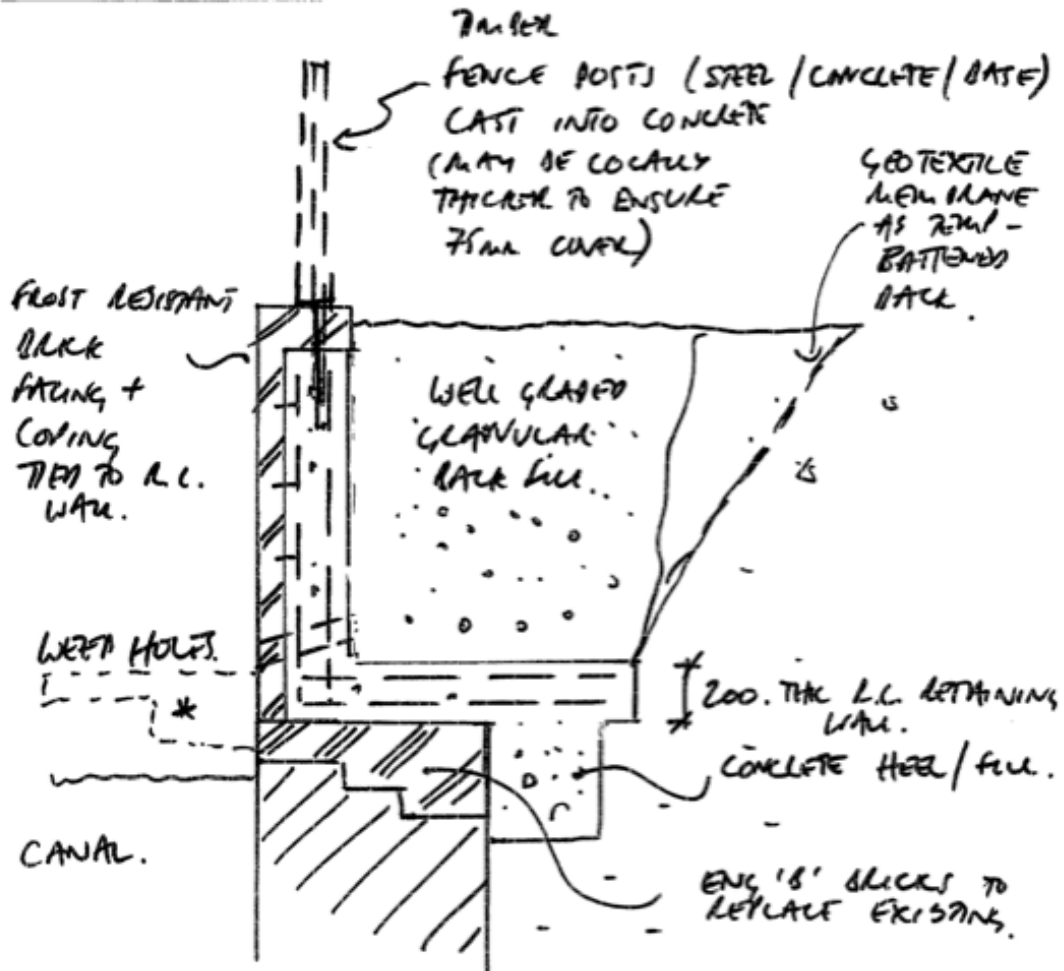 TIMBER
FENCE POSTS (STEEL / CONCRETE / BASE)
CAST INTO CONCRETE
(MAY BE LOCALLY
THICKER TO ENSURE
75mm COVER)
GEOTEXTILE
MEMBRANE
AS TEMP -
BATTENED
BACK.
FROST RESISTANT
BRICK
FACING +
COPING
TIED TO R.C.
WALL.
WELL GRADED
GRANULAR
BACK FILL.
WEEP HOLES.
*
200. THK R.C. RETAINING
WALL.
CONCRETE HEEL / FILL.
CANAL.
ENG 'B' BRICKS TO
REPLACE EXISTING.